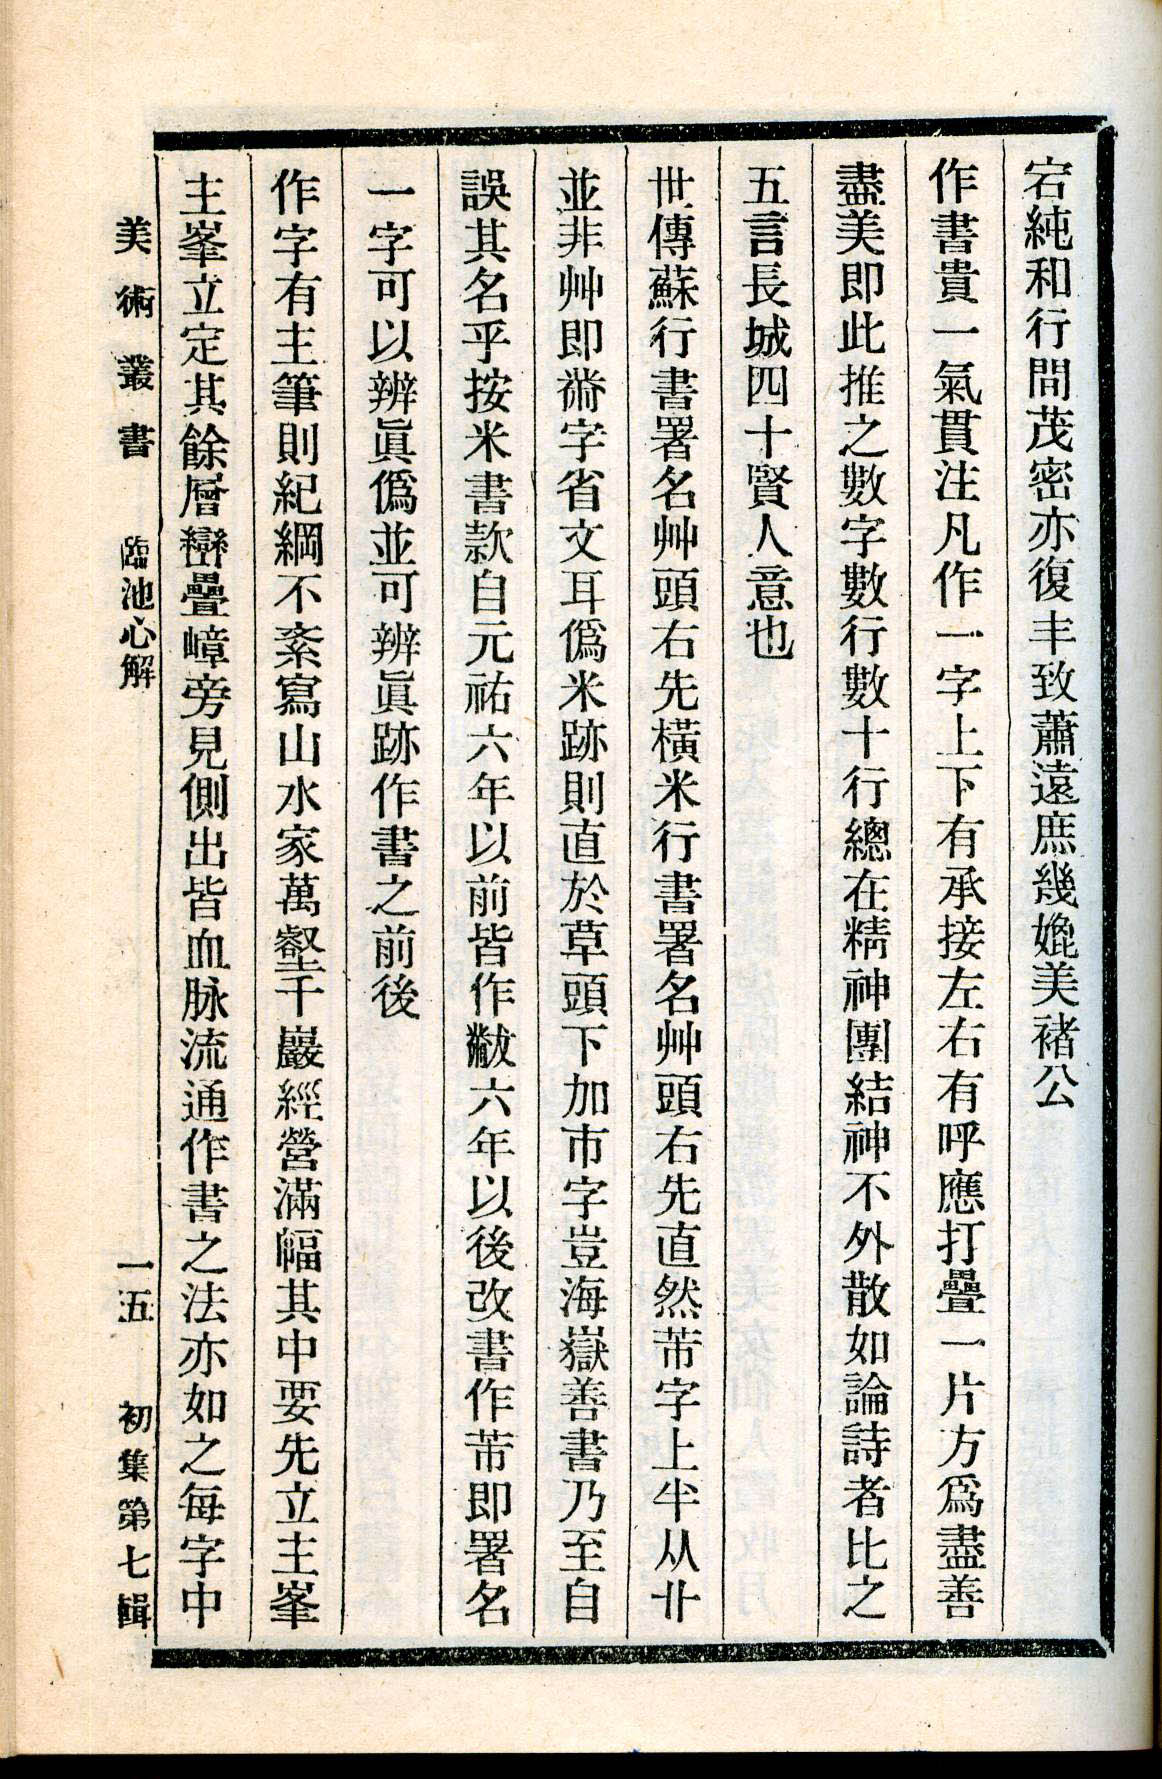 宕純和行間茂密亦復丰致蕭遠庶幾媲美褚公
作書貴一氣貫注凡作一字上下有承接左右有呼應打疊一片方爲盡善
盡美即此推之數字數行數十行總在精神團結神不外散如論詩者比之
五言長城四十賢人意也
世傳蘇行書署名艸頭右先橫米行書署名艸頭右先直然芾字上半从
並非艸即黹字省文耳僞米跡則直於草頭下加市字豈海嶽善書乃至自
誤其名乎按米書款自元祐六年以前皆作黻六年以後改書作芾即署名
一字可以辨眞僞並可辨眞跡作書之前後
作字有主筆則紀綱不紊寫山水家萬壑千巖經營滿幅其中要先立主峯
主峯立定其餘層巒疊嶂旁見側出皆血脉流通作書之法亦如之每字中
美術叢書 臨池心解 一五 初集第七輯